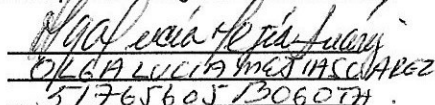 Olga Lucía Mejía Suárez
OLGA LUCIA MEJIA SUAREZ
51765605 BOGOTA